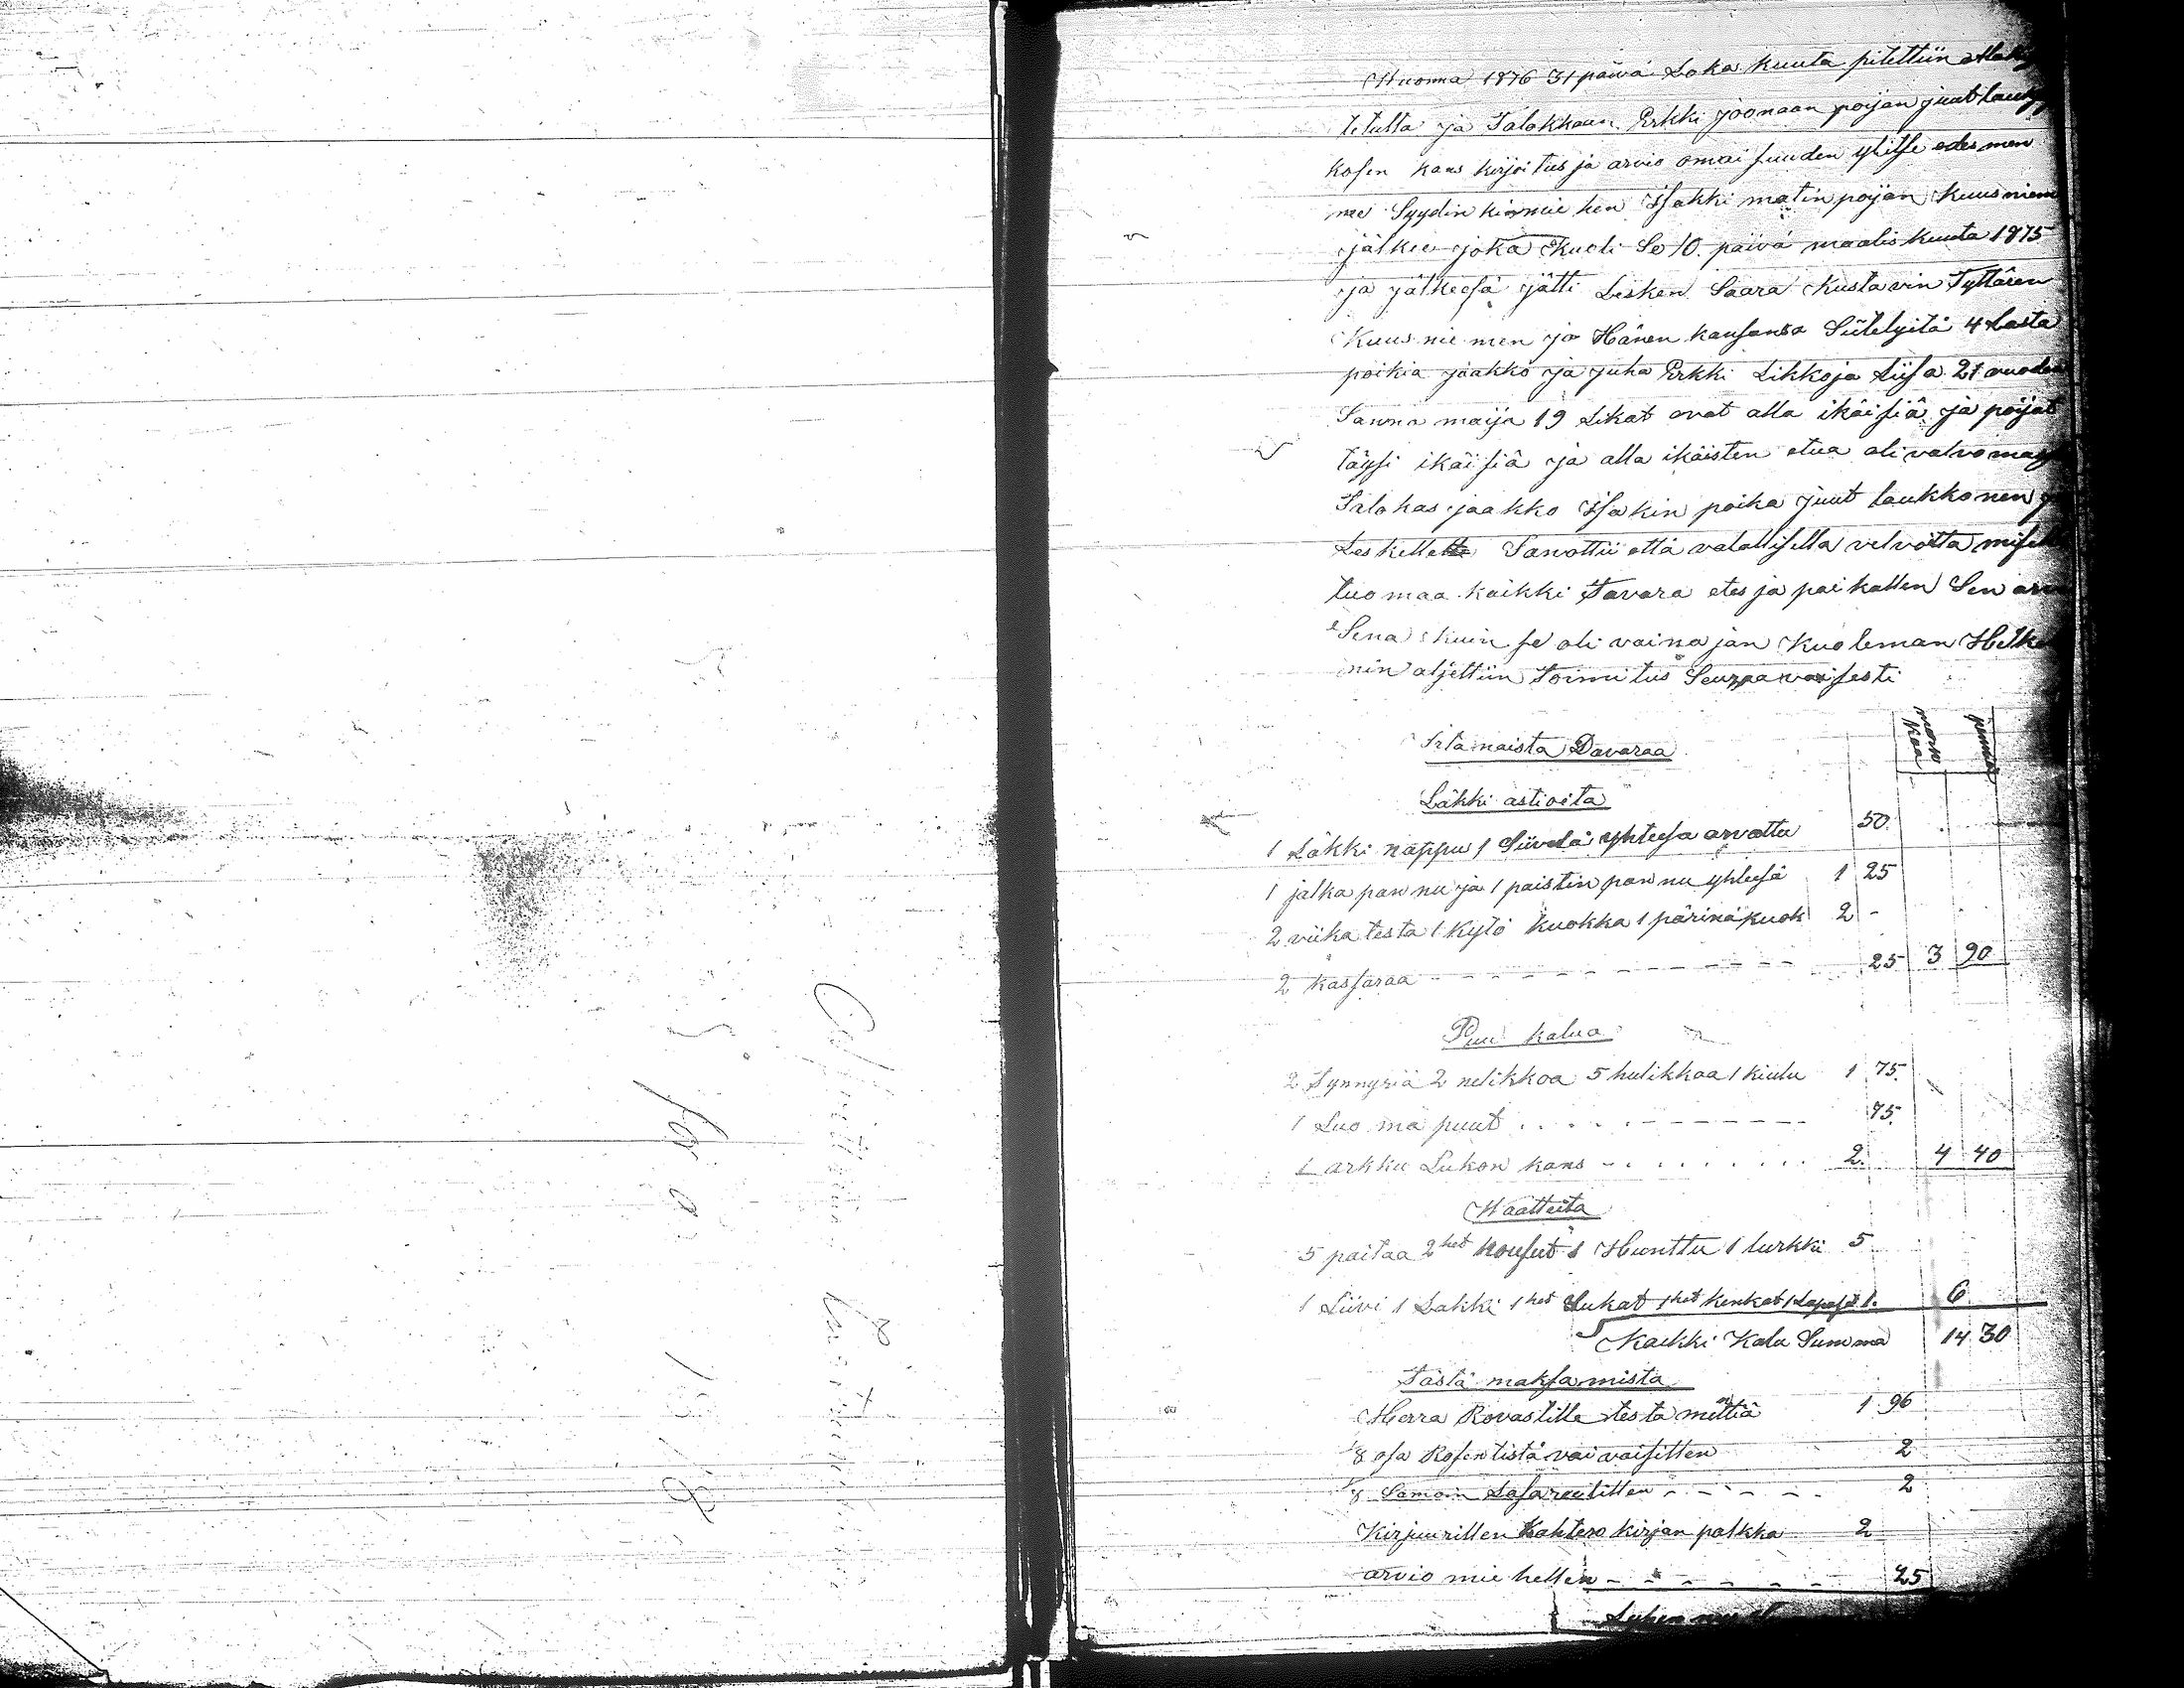 Wuonna 1876 31 päivä Loka kuuta pitettiin
tetulta ja Talokkaan Erkki joonaan poijan juut lauk
kosen kans kirjoitus ja arvio omaisuuden ylitse edes men
ne Syydinkimie hen Isakki matin poijan Kuusniem
jälkee joka Kuoli Se 10. päivä maalis kuuta 1875
ja jälkeesä jätti Lesken Saara Kustavin Tyttären
Kuus nie men ja Hänen kansansa Siitelyitä 4 Lasta
poikia jaakko ja juha Erkki Likkoja Liisa 21 vuoden
Sanna maija 19 Likat ovat alla ikäisiä ja poijat
täysi ikäisiä ja alla ikäisten etua oli valvomas
Talokas jaakko Isakin poika juut laukkonen
Leskelle Sanottii että valallisella velvoitta misel
tuo maa kaikki Tavara etes ja paikallen Sen
Sena kuin se oli vainajan Kuoleman Hetke
nin aljettiin Toimitus Seuraavaisesti
markkaa penniä
Irtanaista Davaraa
Läkki astioita
1 Läkki nappu 1 Siivilä yhteesa arvattu 50
1 jalka pannu ja 1 paistin pannu yhteesä 1 25
2 viikatesta 1 Kytö kuokka 1 pärinä kuok 2 -
2 kassaraa 25 3 90
Puu kalua
2 Tynnyriä 2 nelikkoa 5 hulikkaa 1 kiulu 1 75
1 Luo ma puut 75
1 arkku Lukon kans 2 4 40
Waatteita
5 paitaa 2het housut 1 Hunttu 1 turkki 5
1 Liivi 1 Lakki 1het Sukat 1het kenkät 1 1. 6
Kaikki Kalu Summa 14 30
Tästä maksamista
Herra Rovastille testamenttiä 1 96
1/8 osa Rosentistä vaivaisillen 2
1/8 Samoin Lasareetillen 2
Kirjuurillen Kahten kirjan palkka 2
arvio mie hellen 25